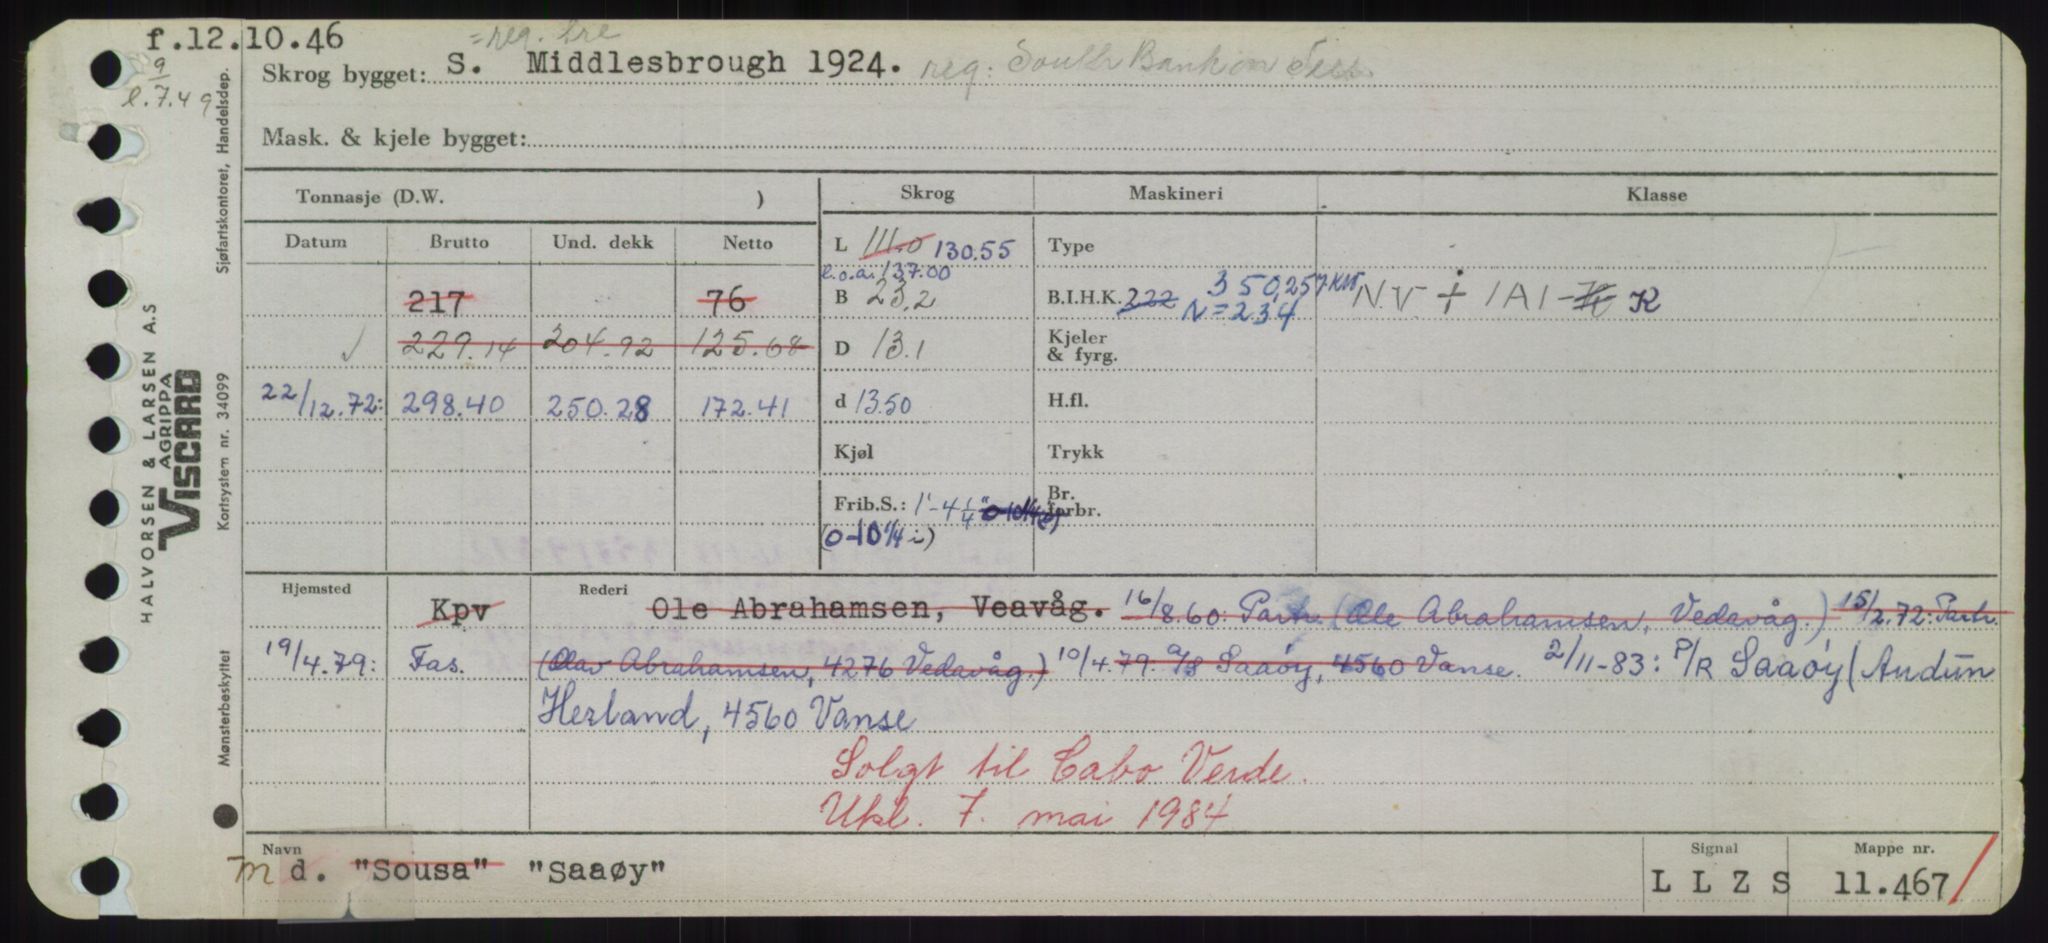 f.12.10.46
= reg. bre
9
l.7.49
Skrog bygget: S. Middlesbrough 1924. reg: South Bank on Tees
Mask. & kjele bygget:
Tonnasje (D.W. ) Skrog Maskineri Klasse
Datum Brutto Und. dekk Netto L 111.0 130.55 Type
l.o.a. 137.00
217 76 B 23,2 B.I.H.K. 222 350,257 KW N.V. + 1A1 - K
N=234
229.14 204.92 125.68 D 13.1 Kjeler & fyrg.
22/12.72: 298.40 250.28 172.41 d 13.50 H.fl.
Kjøl Trykk
Frib.S.: 1'-4 1/4" 0-10 1/4 i) Br. forbr.
(0-10 1/4 i)
Hjemsted Rederi
Kpv Ole Abrahamsen, Veavåg. 16/8.60: Partr. (Ole Abrahamsen, Vedavåg.) 15/2.72: Partr.
19/4.79: Fas. (Olav Abrahamsen, 4276 Vedavåg.) 10/4.79: A/S Saaøy, 4560 Vanse. 2/11-83: P/R Saaøy (Audun
Herland, 4560 Vanse
Solgt til Cabo Verde.
Utkl. 7. mai 1984
Navn Signal Mappe nr.
m d. "Sousa" "Saaøy" L L Z S 11.467
HALVORSEN & LARSEN A.S
AGRIPPA
VISCARD
Mønsterbeskyttet Kortsystem nr. 34099 Sjøfartskontoret, Handelsdep.